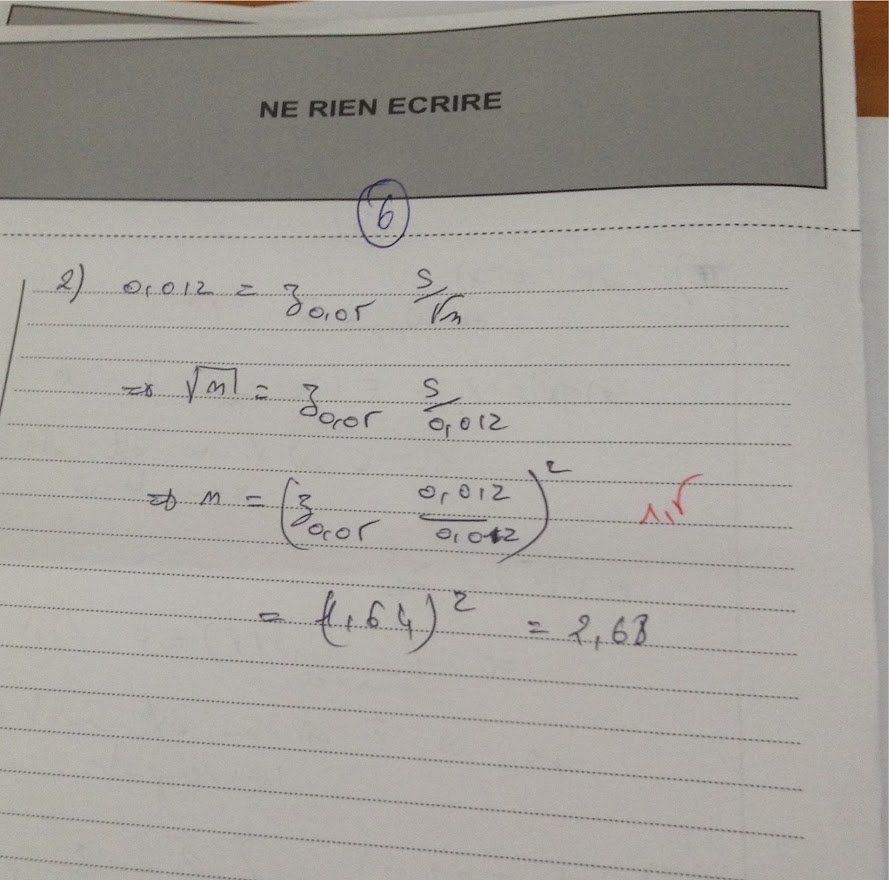 NE RIEN ECRIRE
6
2) 0,012 = z0,05 S/√n
⇒ √n = z0,05 S/0,012
⇒ n = (z0,05 0,012/0,012)² 1,5
= (1,64)² = 2,68